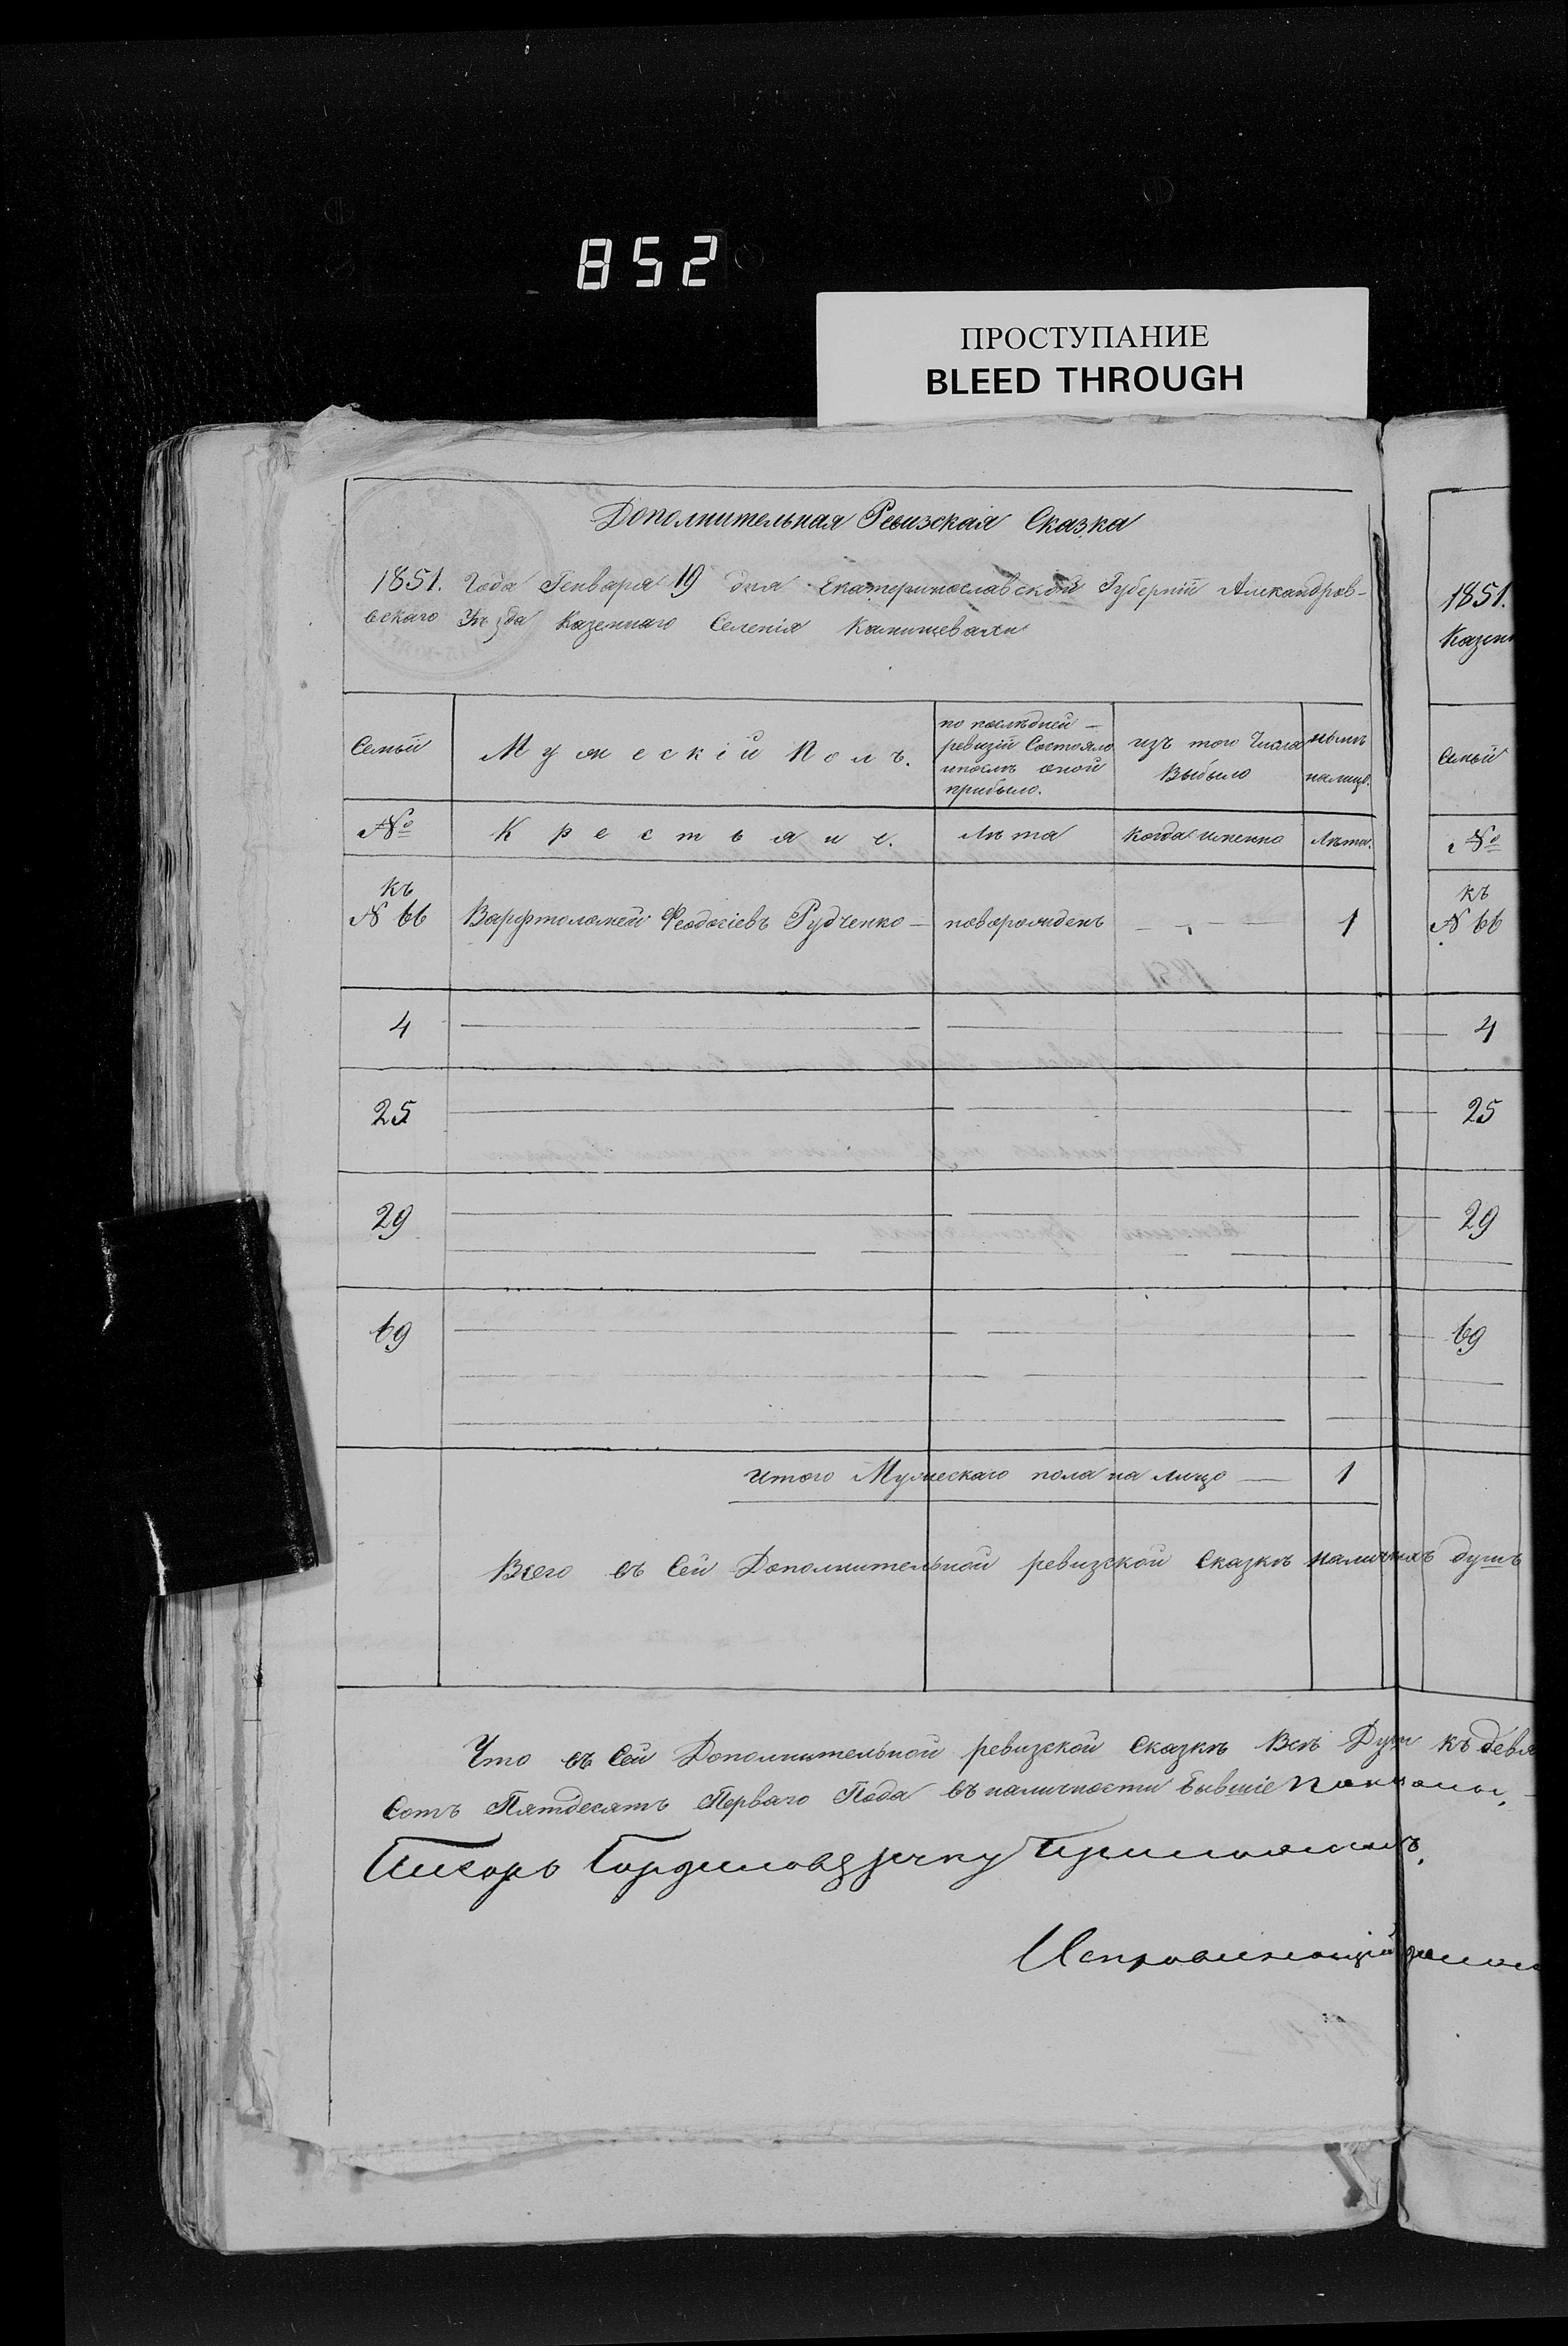 852
ПРОСТУПАНИЕ
BLEED THROUGH
Дополнительная Ревизская Сказка
1851. Года Генваря 19 дня Екатеринославской Губерніи Александров-
вскаго Уѣзда Казеннаго Селенія Камишевахи
1851.
Казен
Семьи
Мужескій Полъ.
по послѣдней
ревизіи Состояло
ипослѣ оной
прибыло.
изъ того Числа
Выбыло
нынѣ
налицо.
Семьи
№
Крестьяне.
Лѣта
когда именно
Лѣта.
№
къ
№ 66 Варфтоломей Феодосіевъ Рудченко — новорожденъ — 1
къ
№ 66
4 4
25 25
29 29
69 69
Итого Мужескаго пола на лицо — 1
Всего въ Сей Дополнительной ревизской Сказкѣ наличныхъ душъ
Что въ Сей Дополнительной ревизской Сказкѣ Всѣ Душ къ девя
Сотъ Пятдесятъ Перваго Года въ наличности бывшіе